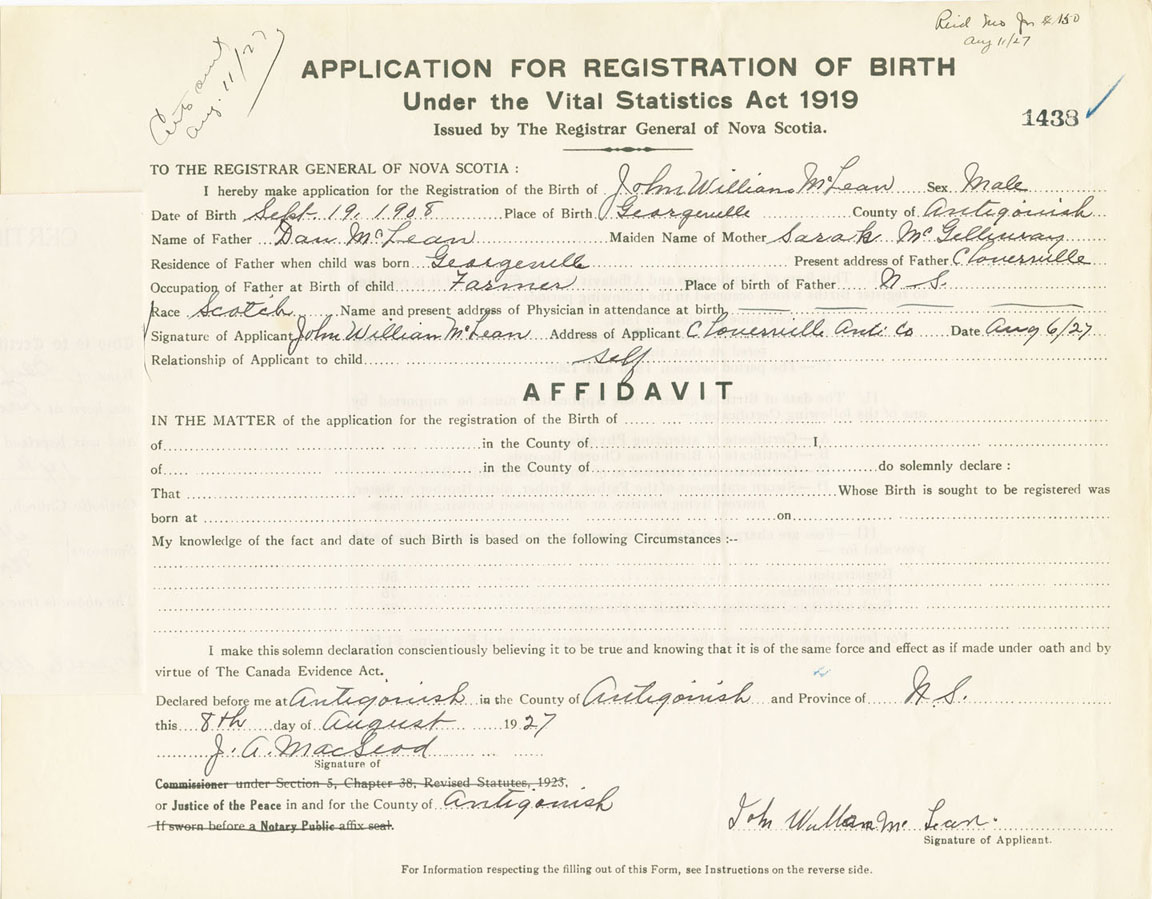 Aug 11/27
Aug. 11/27
APPLICATION FOR REGISTRATION OF BIRTH
Under the Vital Statistics Act 1919
1438
Issued by The Registrar General of Nova Scotia.
TO THE REGISTRAR GENERAL OF NOVA SCOTIA :
I hereby make application for the Registration of the Birth of John William McLean Sex Male
Date of Birth Sept. 19, 1908 Place of Birth Georgeville County of Antigonish
Name of Father Dan McLean Maiden Name of Mother Sarah McGillivray
Residence of Father when child was born Georgeville Present address of Father Cloverville
Occupation of Father at Birth of child Farmer Place of birth of Father N.S.
Race Scotch Name and present address of Physician in attendance at birth
Signature of Applicant John William McLean Address of Applicant Cloverville Anti Co Date Aug 6/27
Relationship of Applicant to child self
AFFIDAVIT
IN THE MATTER of the application for the registration of the Birth of
of in the County of I,
of in the County of do solemnly declare :
That Whose Birth is sought to be registered was
born at on
My knowledge of the fact and date of such Birth is based on the following Circumstances :--
I make this solemn declaration conscientiously believing it to be true and knowing that it is of the same force and effect as if made under oath and by
virtue of The Canada Evidence Act.
Declared before me at Antigonish in the County of Antigonish and Province of N.S.
this 8th day of August 1927
J. A. MacLeod
Signature of
Commissioner under Section 5, Chapter 38, Revised Statutes, 1923,
or Justice of the Peace in and for the County of Antigonish
If sworn before a Notary Public affix seal.
John William McLean.
Signature of Applicant.
For Information respecting the filling out of this Form, see Instructions on the reverse side.